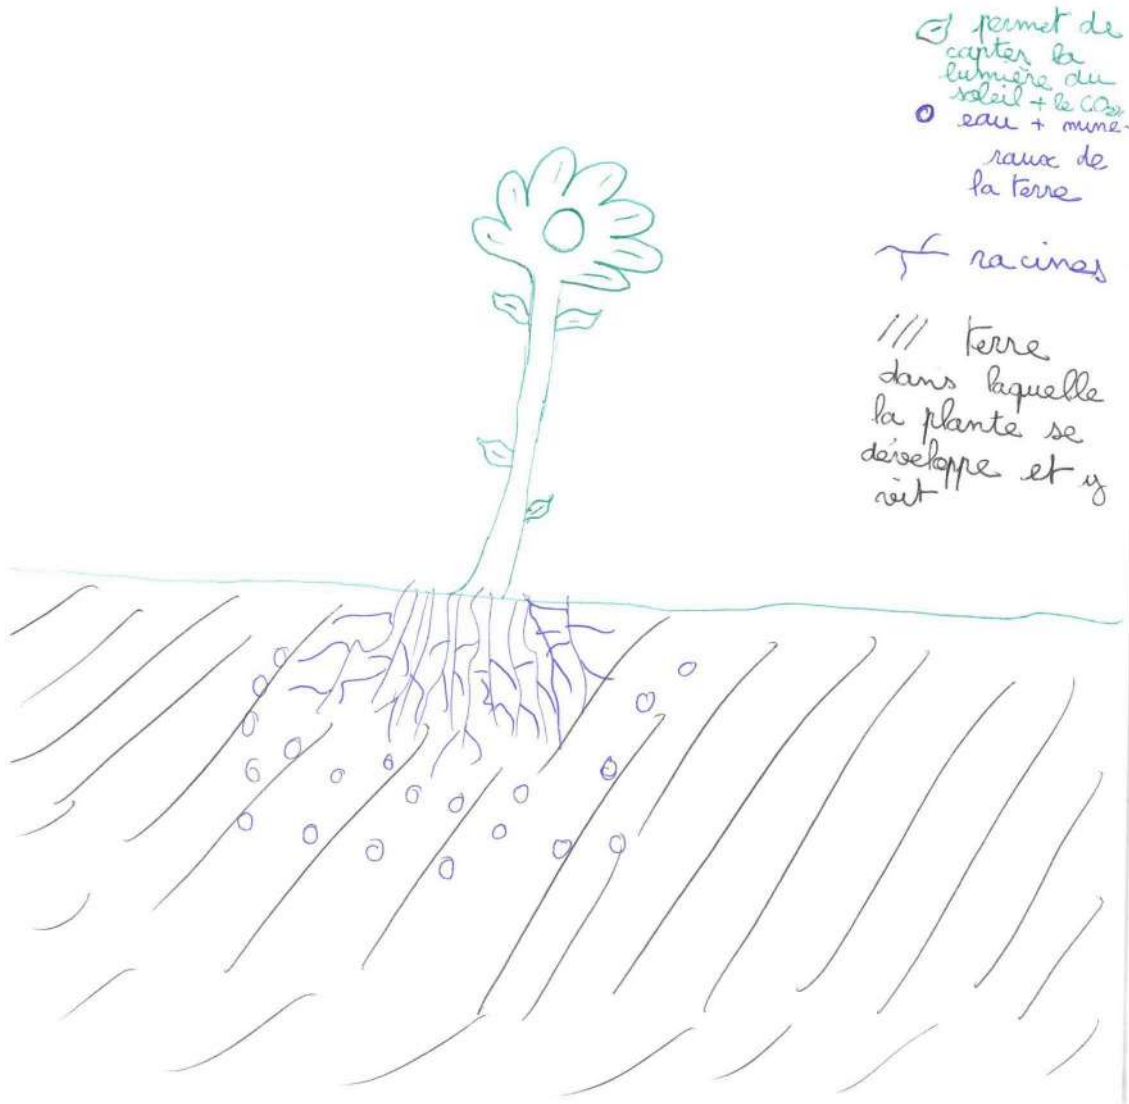 permet de
capter la
lumière du
soleil + le CO₂
eau + miné-
raux de
la terre
racines
terre
dans laquelle
la plante se
développe et y
vit